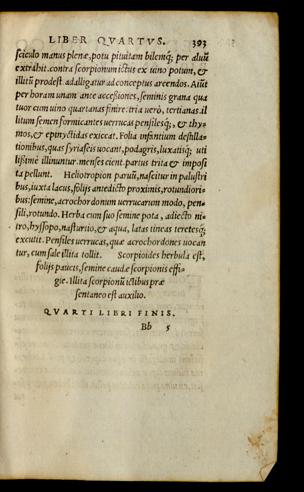 LIBER QVARTVS. 393
sciculo manus plenæ, potu pituitam bilemq́;, per aluũ
extrahit. contra scorpionum ictus ex uino potum, &
illitũ prodest. adalligatur ad conceptus arcendos. Aiũt
per horam unam ante accessiones, seminis grana qua
tuor cum uino quartanas finire. tria uerò, tertianas. il
litum semen formicantes uerrucas pensilesq́;, & thy-
mos, & epinyctidas exiccat. Folia infantium destilla-
tionibus, quas syriaseis uocant, podagris, luxatisq́; uti
lißimè illinuntur. menses cient partus trita & imposi
ta pellunt. Heliotropion paruũ, nascitur in palustri
bus, iuxta lacus, folijs antedicto proximis, rotundiori-
bus: semine, acrochordonum uerrucarum modo, pen-
sili, rotundo. Herba cum suo semine pota, adiecto ni-
tro, hyssopo, nasturtio, & aqua, latas tineas teretesq́;
excutit. Pensiles uerrucas, quæ acrochordones uocan
tur, cum sale illita tollit. Scorpioides herbula est,
folijs paucis, semine caudæ scorpionis effi-
gie. Illita scorpionũ ictibus præ
sentaneo est auxilio.
QVARTI LIBRI FINIS.
Bb 5